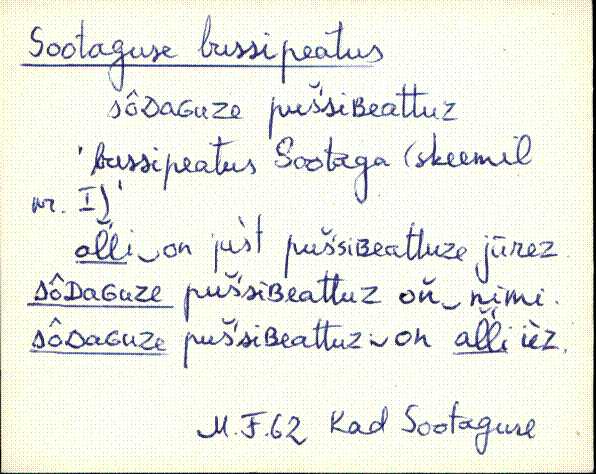 Sootaguse bussipeatus
sôDaGuze pušsiBeattuz
'bussipeatus Sootaga (skeemil
nr. I)'
al̆l̆i‿on jùst pušsiBeattuze jūrez
sôDaGuze pušsiBeattuz on̆‿nimi.
sôDaGuze pušsiBeattuz‿on al̆l̆i ièz.
M.F.62 Kad Sootaguse